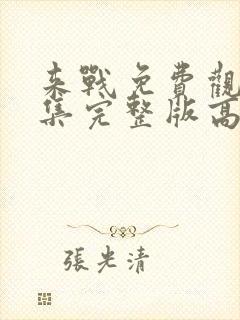 來戰免費觀
集完整版高
張光清